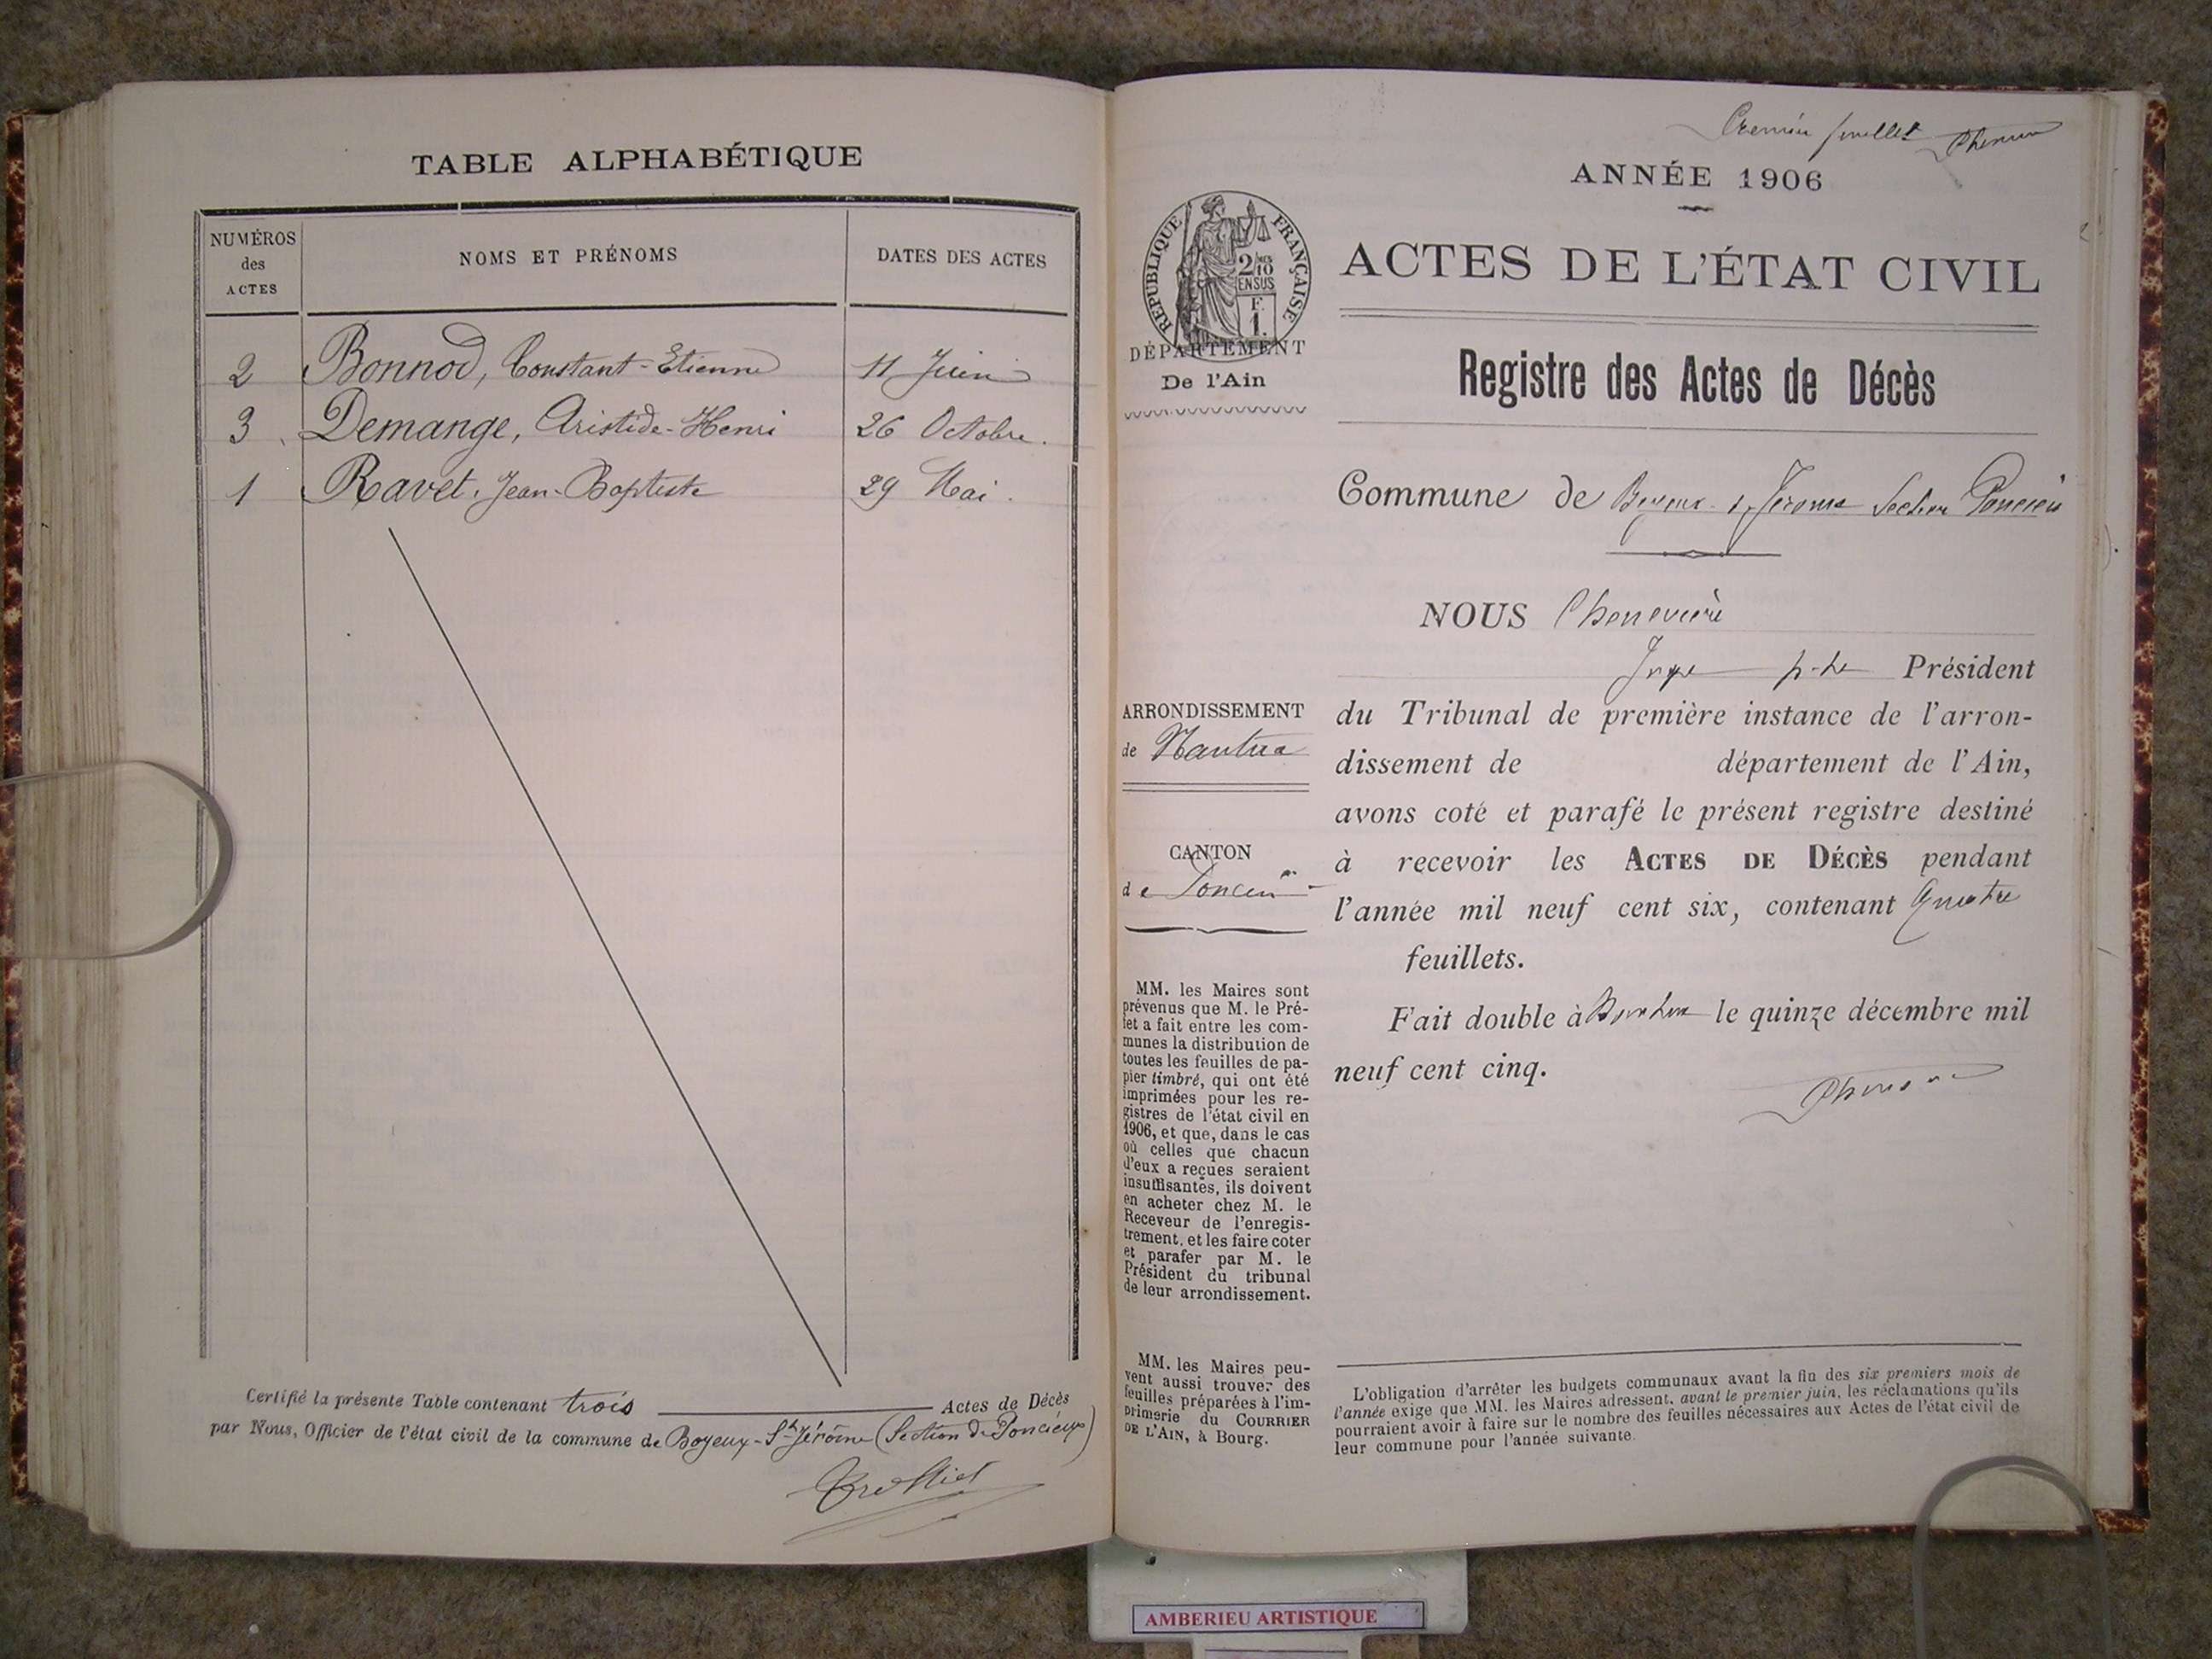 TABLE ALPHABÉTIQUE
NUMÉROS
des
ACTES
NOMS ET PRÉNOMS
DATES DES ACTES
2 Bonnod, Constant-Etienne 11 Juin
3 Demange, Aristide-Henri 26 Octobre.
1 Ravet, Jean-Baptiste 29 Mai.
Certifié la présente Table contenant trois Actes de Décès
par Nous, Officier de l'état civil de la commune de Boyeux-St Jérôme (Section de Poncieux)
Premier feuillet
ANNÉE 1906
RÉPUBLIQUE FRANÇAISE
2/10
EN SUS
F.
1.
DÉPARTEMENT
De l'Ain
ACTES DE L'ÉTAT CIVIL
Registre des Actes de Décès
Commune de Boyeux St Jérome Section Poncieu
NOUS Chenevière
Juge p. le Président
ARRONDISSEMENT
de Nantua
du Tribunal de première instance de l'arron-
dissement de département de l'Ain,
avons coté et parafé le présent registre destiné
à recevoir les ACTES DE DÉCÈS pendant
l'année mil neuf cent six, contenant quatre
feuillets.
Fait double à le quinze décembre mil
neuf cent cinq.
CANTON
de Poncin
MM. les Maires sont
prévenus que M. le Pré-
fet a fait entre les com-
munes la distribution de
toutes les feuilles de pa-
pier timbré, qui ont été
imprimées pour les re-
gistres de l'état civil en
1906, et que, dans le cas
où celles que chacun
d'eux a reçues seraient
insuffisantes, ils doivent
en acheter chez M. le
Receveur de l'enregis-
trement, et les faire coter
et parafer par M. le
Président du tribunal
de leur arrondissement.
MM. les Maires peu-
vent aussi trouver des
feuilles préparées à l'im-
primerie du COURRIER
DE L'AIN, à Bourg.
L'obligation d'arrêter les budgets communaux avant la fin des six premiers mois de
l'année exige que MM. les Maires adressent, avant le premier juin, les réclamations qu'ils
pourraient avoir à faire sur le nombre des feuilles nécessaires aux Actes de l'état civil de
leur commune pour l'année suivante.
AMBERIEU ARTISTIQUE